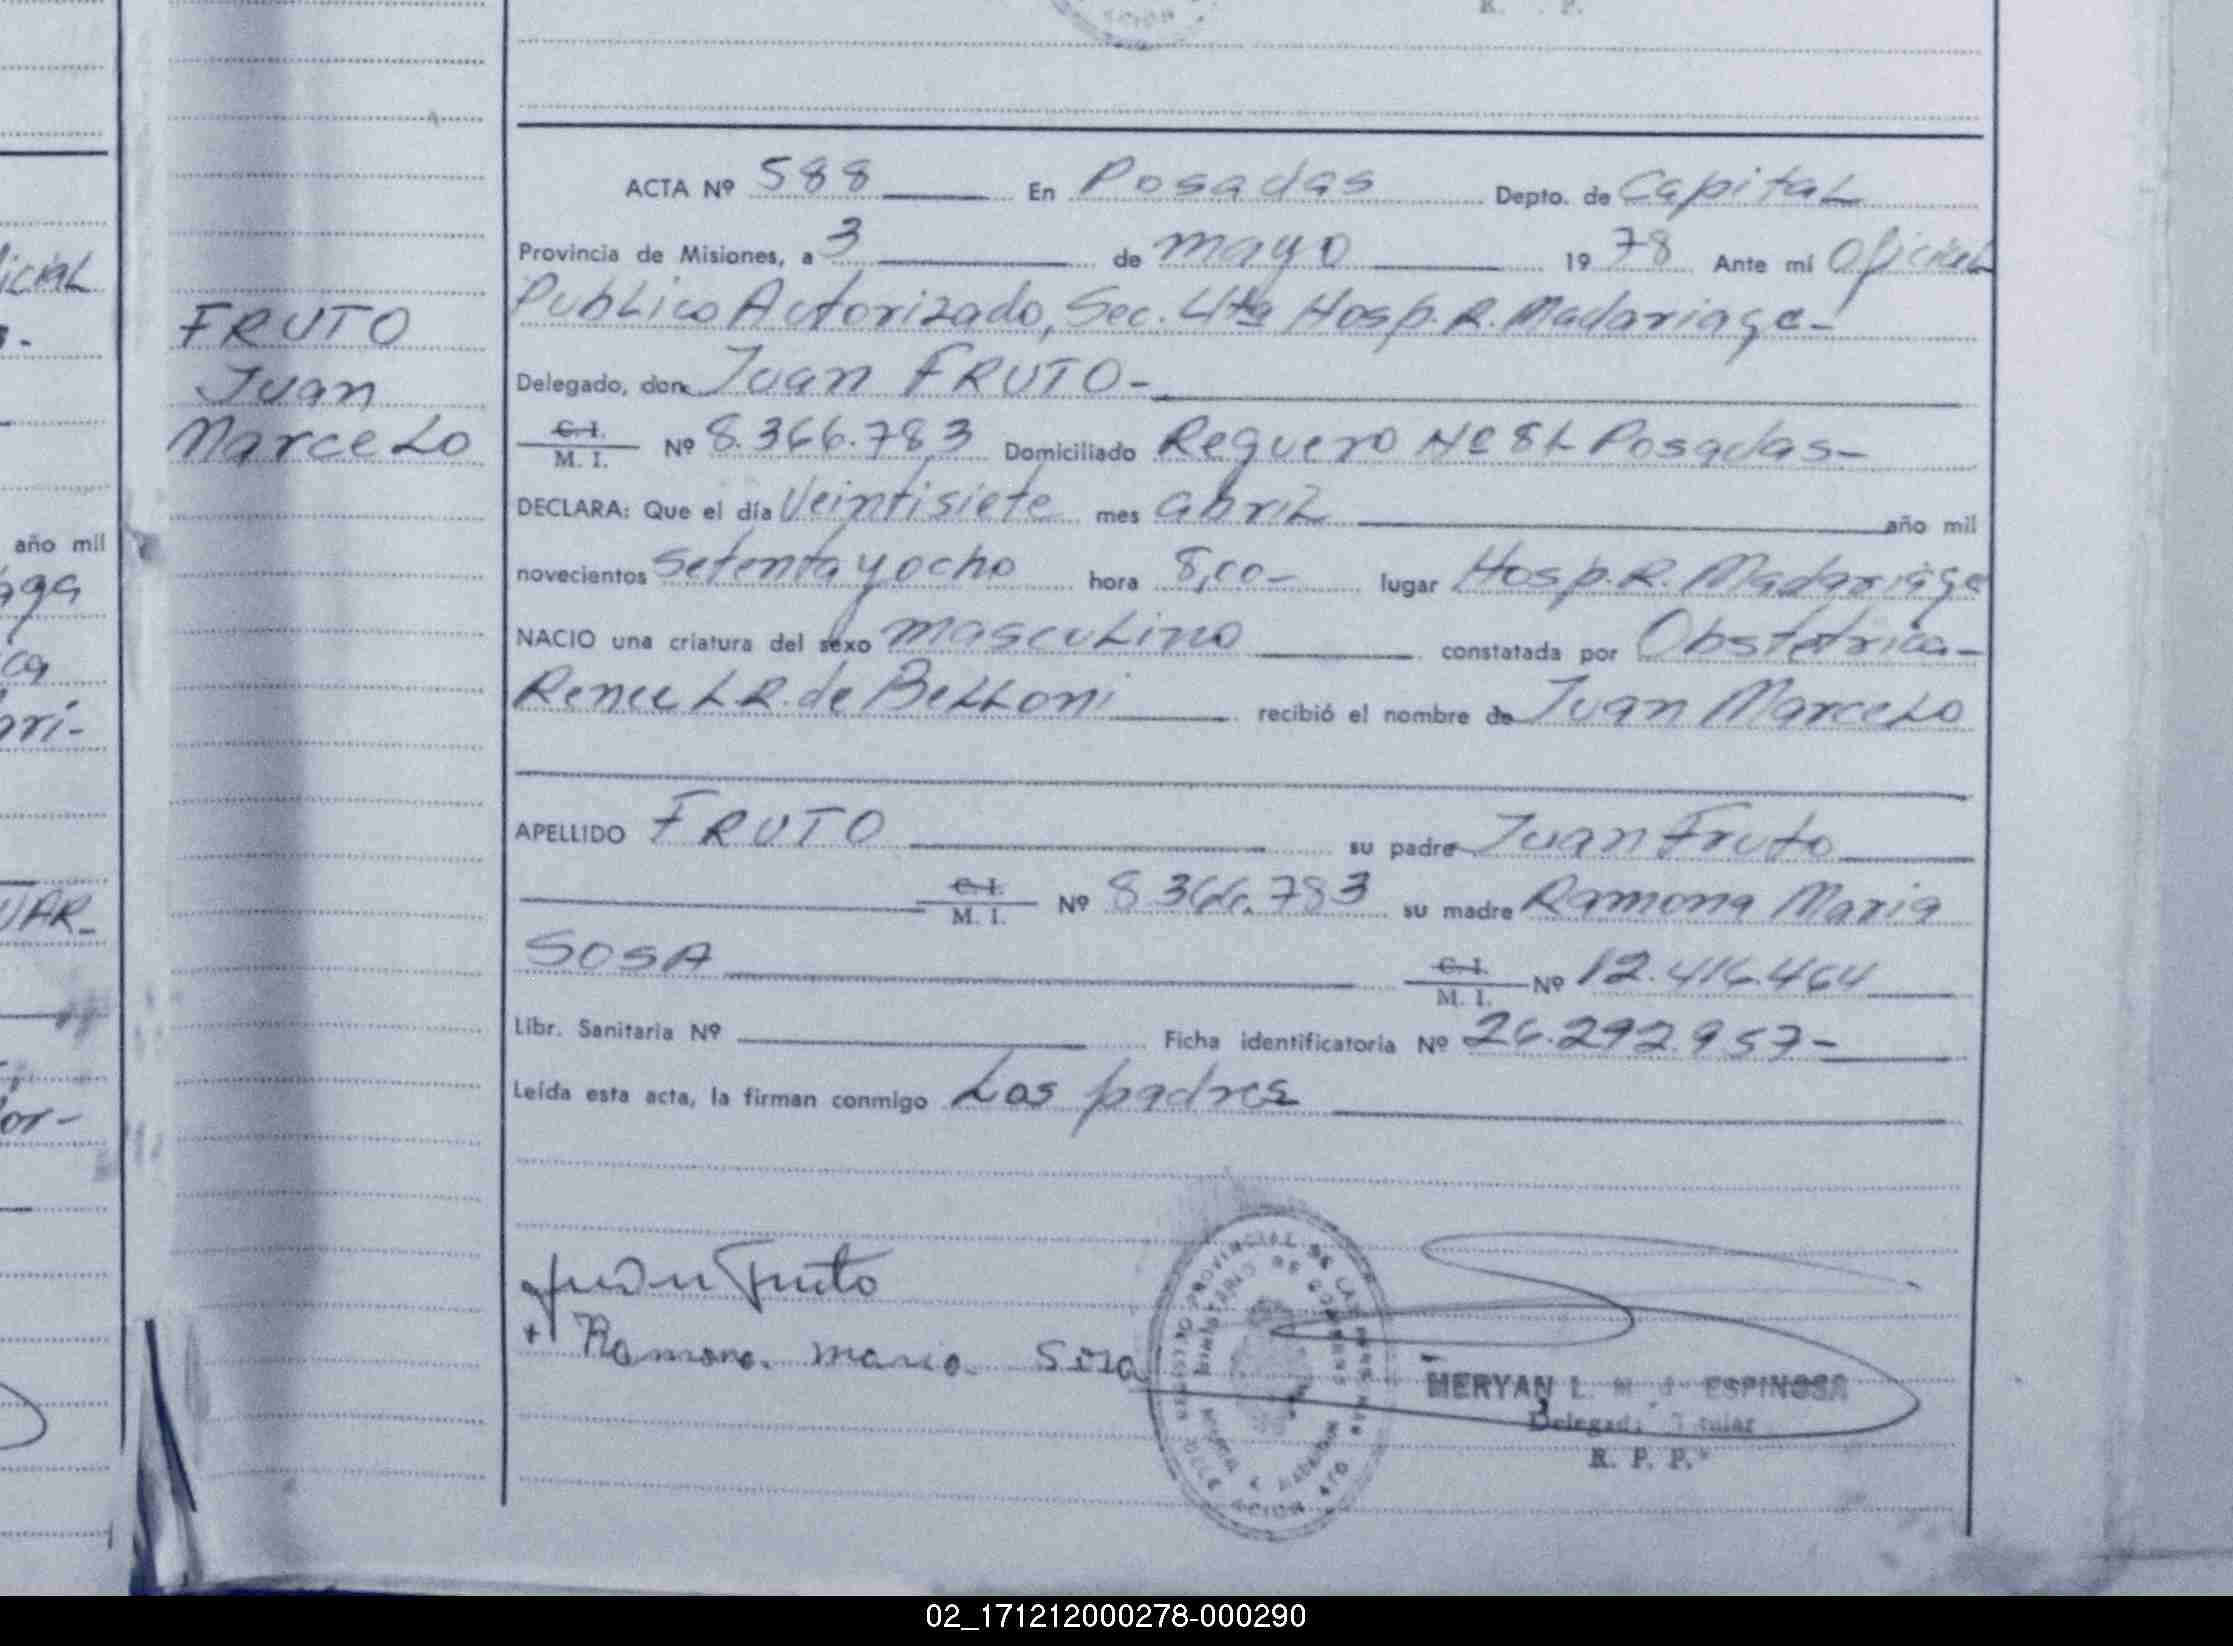 ACTA Nº 588 En Posadas Depto. de Capital
Provincia de Misiones, a 3 de mayo 1978 Ante mi Oficial
Publico Autorizado, Sec. 4ta Hosp. R. Madariaga-
Delegado, don Juan FRUTO-
C. I. M. I. Nº 8.366.783 Domiciliado Reguero Nº 81 Posadas-
DECLARA: Que el día Veintisiete mes abril año mil
novecientos setenta y ocho hora 8,00- lugar Hosp. R. Madariaga
NACIO una criatura del sexo masculino constatada por Obstetrica-
Renee L R. de Belloni recibió el nombre de Juan Marcelo
APELLIDO FRUTO su padre Juan Fruto
C. I. M. I. Nº 8.366.783 su madre Ramona Maria
SOSA C. I. M. I. Nº 12.416.464
Libr. Sanitaria Nº Ficha identificatoria Nº 26.292.957-
Leída esta acta, la firman conmigo Los padres
Juan Fruto
+ Ramona Maria Sosa
MERYAN L. ESPINOSA
Delegada Titular
R. P. P.
FRUTO
Juan
Marcelo
icial
año mil
aga
ica
ari-
UAR-
or-
R. P.
02_171212000278-000290